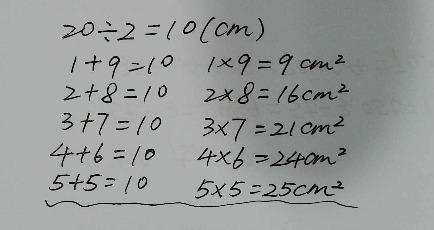 20÷2=10(cm)
1+9=10 1×9=9cm²
2+8=10 2×8=16cm²
3+7=10 3×7=21cm²
4+6=10 4×6=24cm²
5+5=10 5×5=25cm²